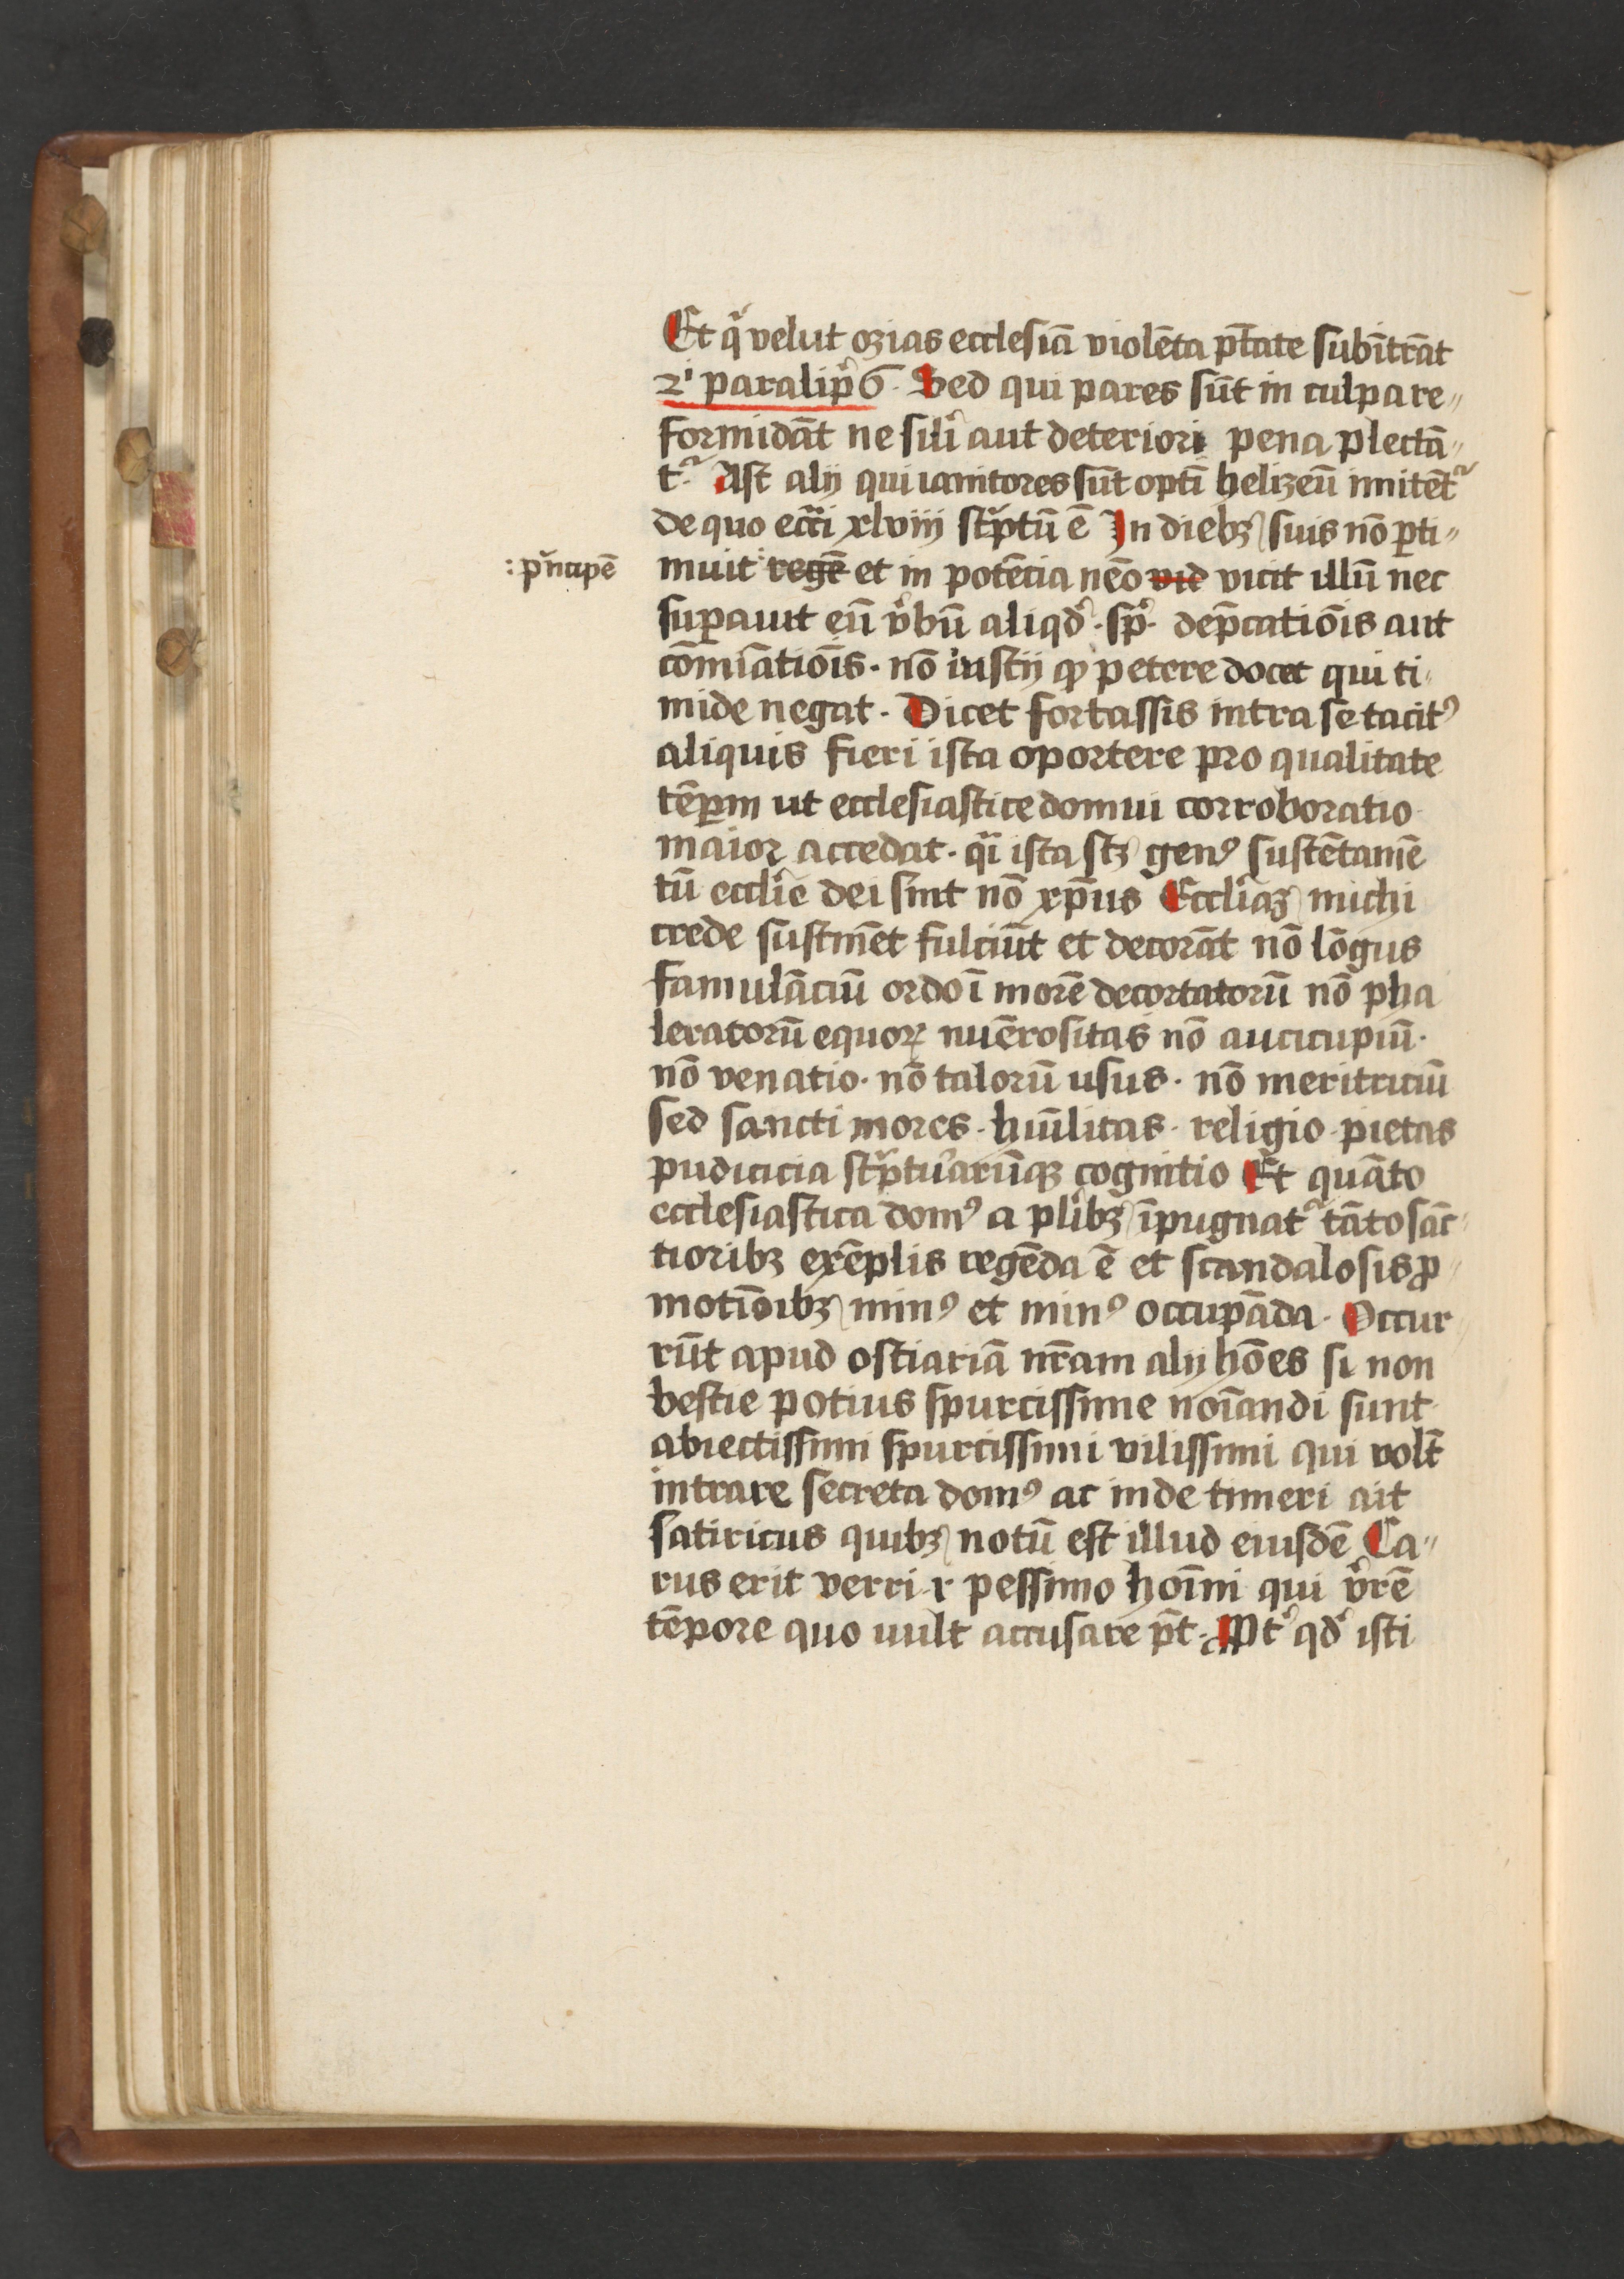 Et qͣ velut ozias ecclesiā violēta ptāte subītrāt
2ⁱ paralipꝰ 6. Sed qui pares sūt in culpa re„
formidāt ne silī aut deteriori pena plectā„
t᷑. Ast alij qui ianitores sūt optī helizeū imitēt᷑
de quo ecc̄i xlviij sc̄ptū ē In diebꝫ suis nō ꝑti„
: pͥncipē
muit : regē et in potēcia nēo vid vicit illū nec
suꝑauit eū v̓bū aliqd̓. sp̓. dep̄cationis aut
cōmīationis. nō iustij qꝫ petere docet qui ti„
mide negat. Dicet fortassis intra se tacitꝰ
aliquis fieri ista oportere pro qualitate
tēꝑm ut ecclesiastice domui corroboratio
maior accedat. qͣi ista scꝫ genꝰ sustētamē
tū eccl̓ie dei sint nō xp̄us Eccl̓iaꝫ michi
crede sustinēt fulciūt et decorāt nō lōgus
famulāciū ordo ī morē decortatorū nō pha
leratorū equoꝝ nūerositas nō aucupiū.
nō venatio. nō talorū usus. nō meritriciū
sed sancti mores. hūilitas. religio. pietas
pudicicia sc̄ptu᷑arūqꝫ cognitio Et quāto
ecclesiastica domꝰ a pl̓ibꝫ īpugnat᷑ tāto sāc„
tioribꝫ exēplis regēda ē et scandalosis ꝓ„
motiōibꝫ minꝰ et minꝰ occupāda. Occur„
rūt apud ostiariā nr̄am alij hōes si non
bestie potius spurcissime noīandi sunt
abiectissimi spurcissimi vilissimi qui volt̄
intrare secreta domꝰ ac inde timeri ait
satiricus quibꝫ notū est illud eiusdē Ca„
rus erit verri. r pessimo hoīni qui v̓rē
tēpore quo uult accusare pt̄. Ptꝰ qd̓ isti